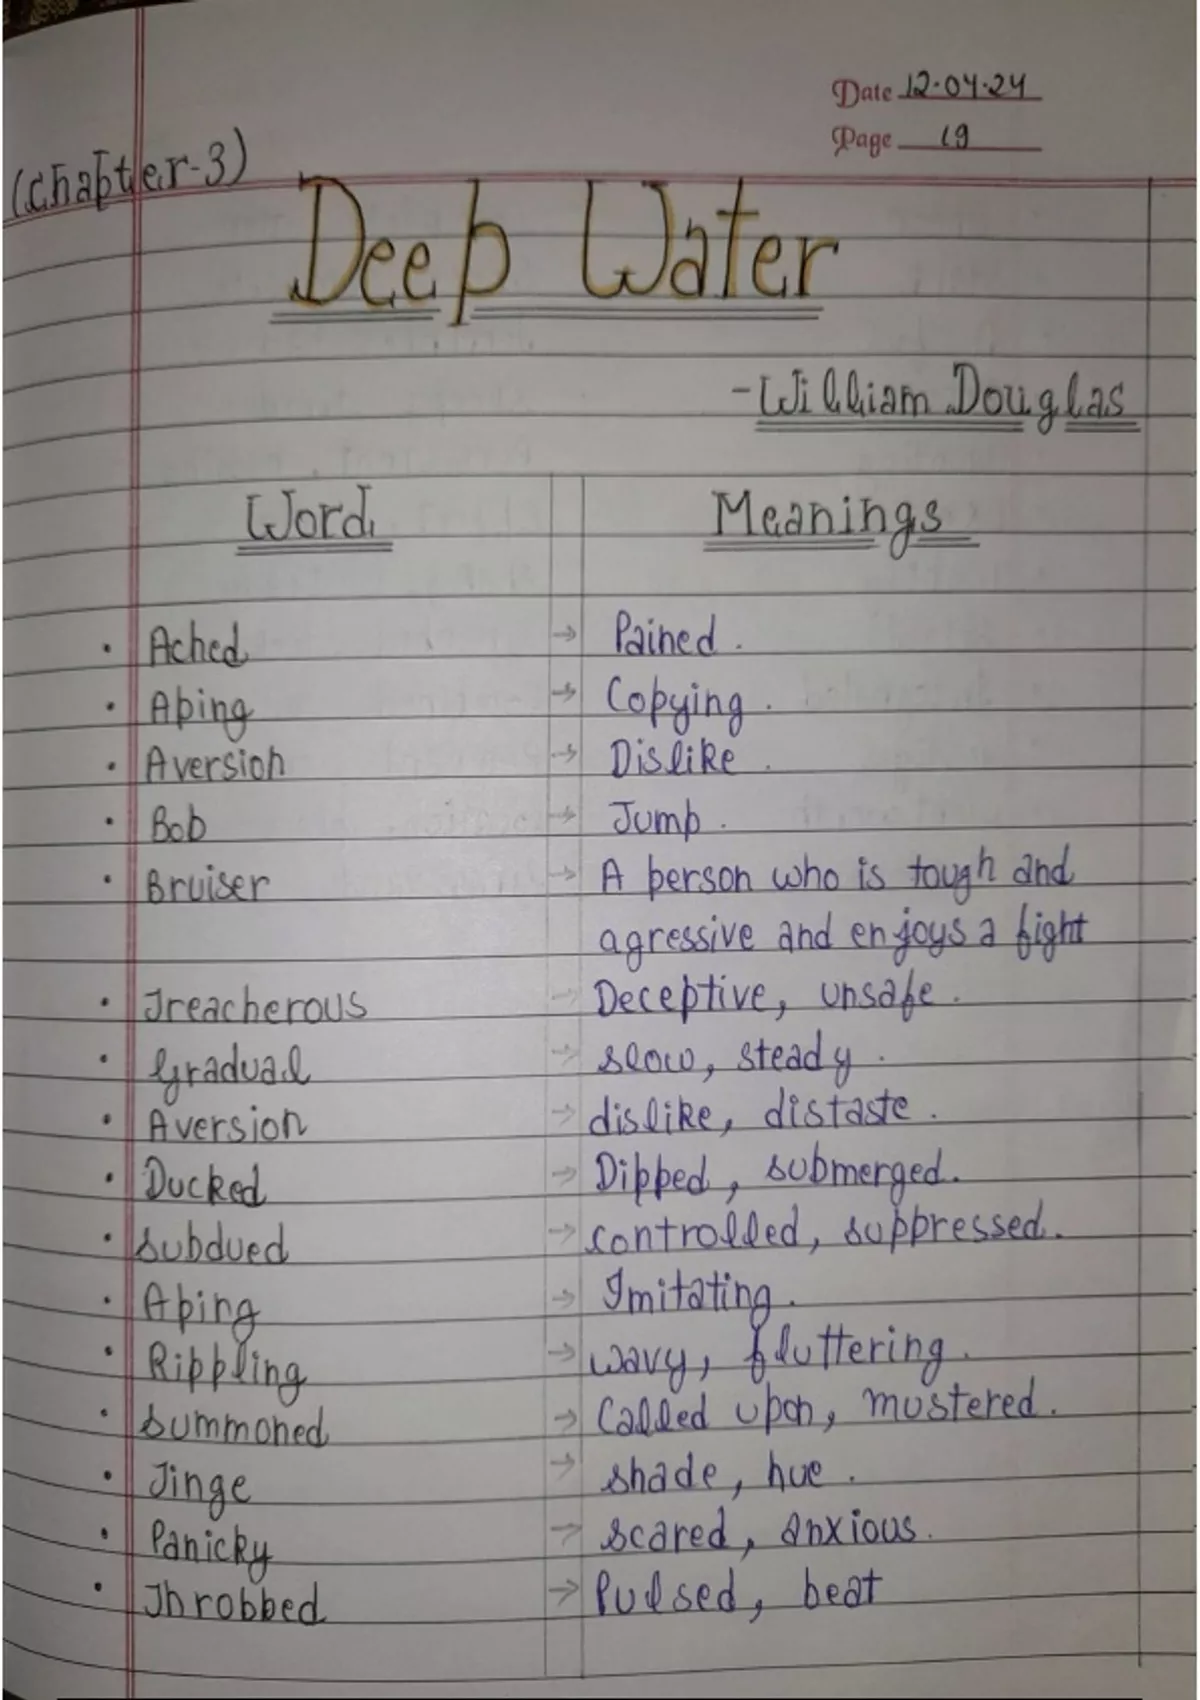 Date 12.04.24
Page 19
(Chapter-3)
Deep Water
-William Douglas
Word Meanings
• Ached → Pained.
• Aping → Copying.
• Aversion → Dislike.
• Bob → Jump.
• Bruiser → A person who is tough and
agressive and enjoys a fight
• Treacherous → Deceptive, unsafe.
• Gradual → slow, steady.
• Aversion → dislike, distaste.
• Ducked → Dipped, submerged.
• subdued → controlled, suppressed.
• Aping → Imitating.
• Rippling → wavy, fluttering.
• summoned → Called upon, mustered.
• Tinge → shade, hue.
• Panicky → scared, anxious.
• Throbbed → Pulsed, beat